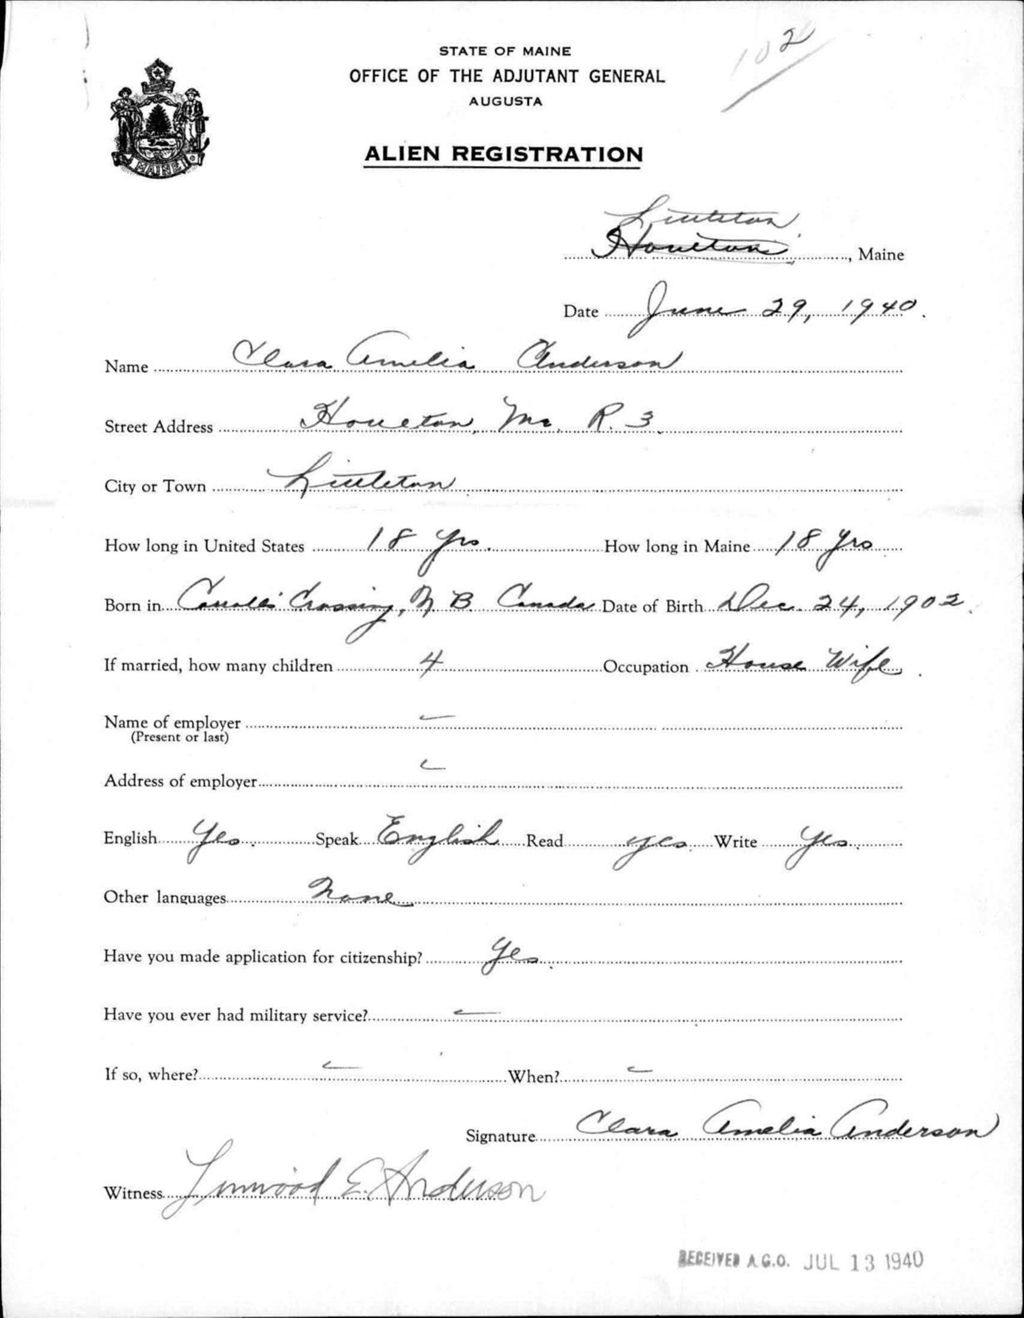 102
STATE OF MAINE
OFFICE OF THE ADJUTANT GENERAL
AUGUSTA
MAINE
ALIEN REGISTRATION
Littleton
Houlton, Maine
Date June 29, 1940.
Name Clara Amelia Anderson
Street Address Houlton, Me. R. 3.
City or Town Littleton
How long in United States 18 yrs. How long in Maine 18 yrs
Born in Carrolls Crossing, N B Canada Date of Birth Dec. 24, 1902.
If married, how many children 4 Occupation House Wife.
Name of employer
(Present or last)
Address of employer
English Yes. Speak English Read yes Write Yes.
Other languages None
Have you made application for citizenship? Yes.
Have you ever had military service?
If so, where? When?
Signature Clara Amelia Anderson
Witness Linwood E. Anderson
RECEIVED A.G.O. JUL 13 1940